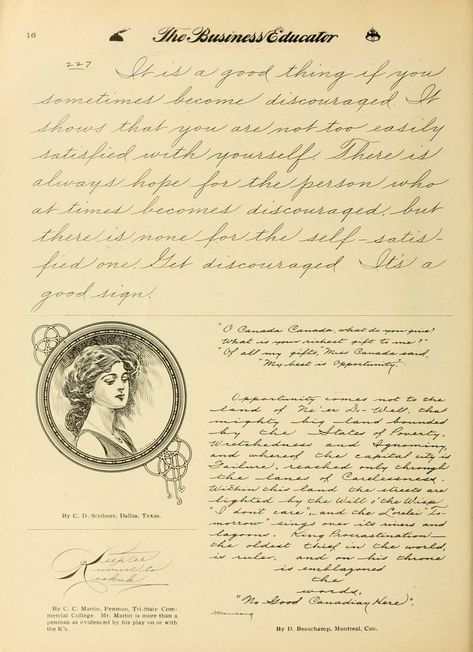 16
The Business Educator
227
It is a good thing if you
sometimes become discouraged. It
shows that you are not too easily
satisfied with yourself. There is
always hope for the person who
at times becomes discouraged, but
there is none for the self-satis-
fied one. Get discouraged. It's a
good sign.
By C. D. Scribner, Dallas, Texas.
Keep
Keokuk
By C. C. Martin, Penman, Tri-State Com-
mercial College. Mr. Martin is more than a
penman as evidenced by his play on or with
the K's.
"O Canada Canada, what do you give?
What is your richest gift to me?"
"Of all my gifts," Miss Canada said,
"My best is Opportunity."
Opportunity comes not to the
land of Ne'er Do-Well, tha
mighty big land bounded
by the States of Poverty,
Wretchedness and Ignominy,
and whereof the capital city is
Failure, reached only through
the lanes of Carelessness.
Within this land the streets are
lighted by the Will o' the Wisps
"I don't care", and the Lorelei "To-
morrow" sings over its rivers and
lagoons. King Procrastination—
the oldest thief in the world,
is ruler, and on his throne
is emblagoned
the
words,
"No Good Canadian Here".
By D. Beauchamp, Montreal, Can.